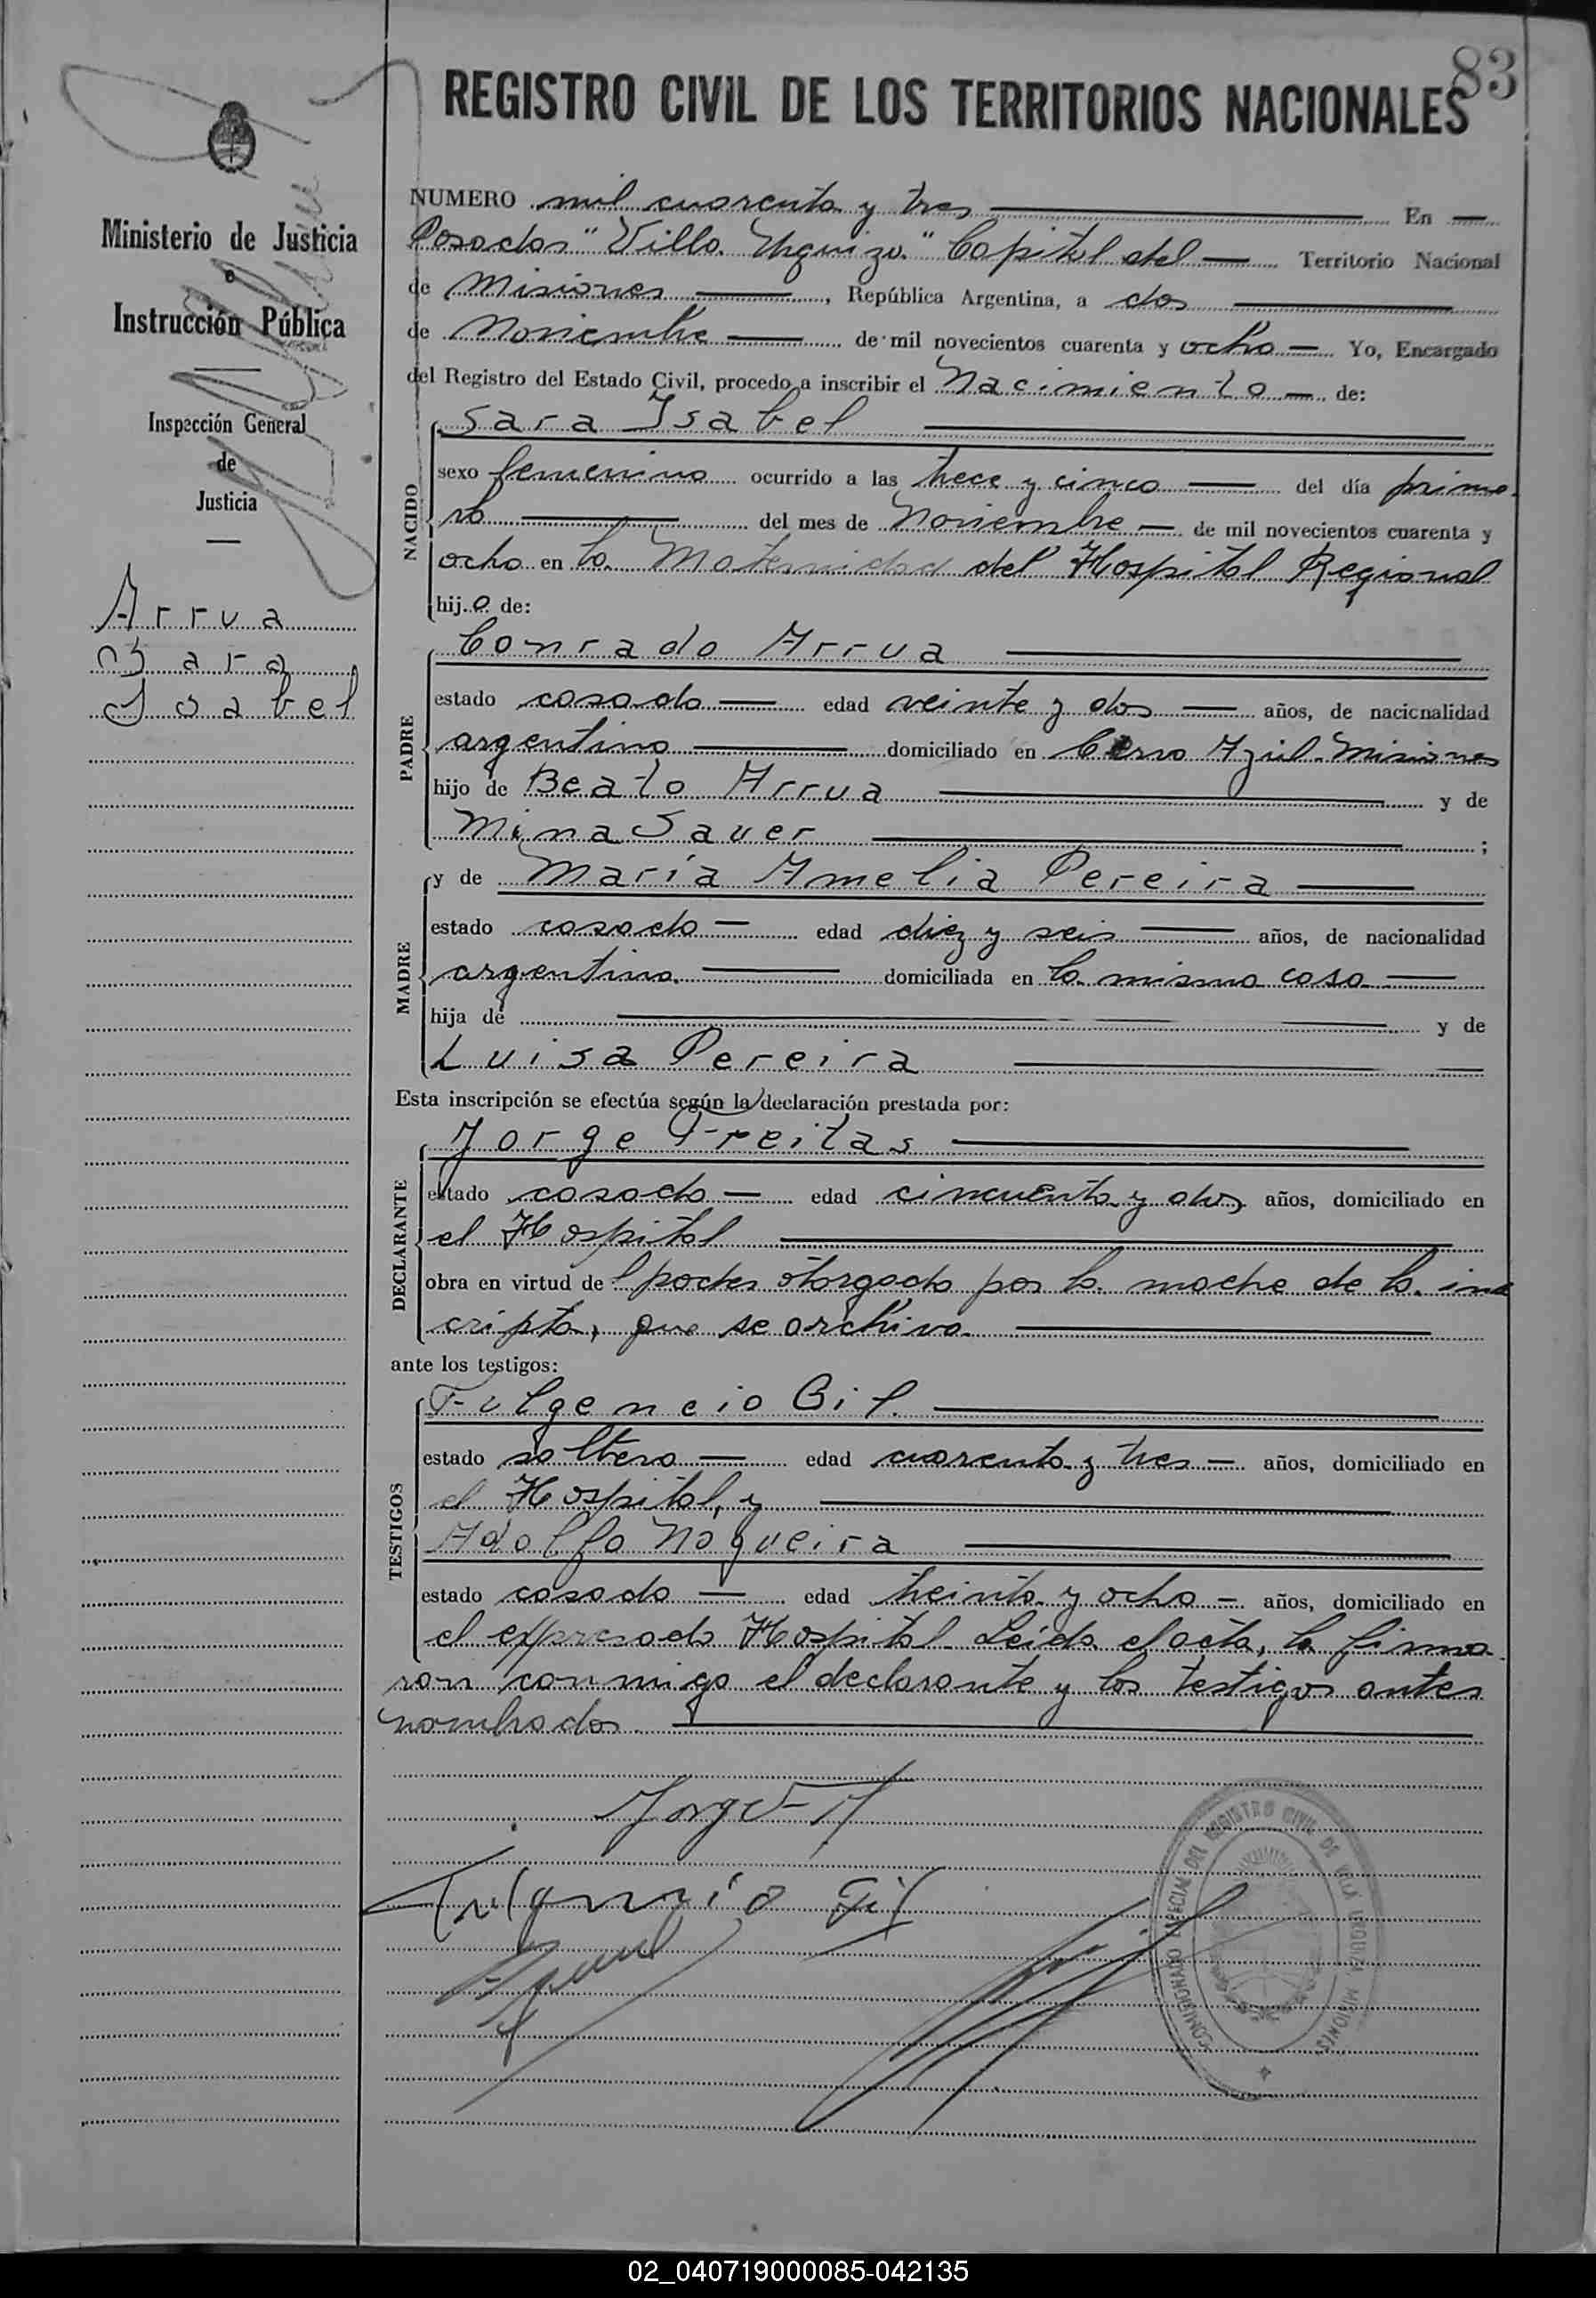 83
REGISTRO CIVIL DE LOS TERRITORIOS NACIONALES
Ministerio de Justicia
e
Instrucción Pública
Inspección General
de
Justicia
Arrua
Sara
Isabel
NUMERO mil cuarenta y tres En
Posadas "Villa Urquiza" Capital del Territorio Nacional
de Misiones, República Argentina, a dos
de Noviembre de mil novecientos cuarenta y ocho Yo, Encargado
del Registro del Estado Civil, procedo a inscribir el Nacimiento de:
NACIDO
Sara Isabel
sexo femenino ocurrido a las trece y cinco del día prime-
ro del mes de Noviembre de mil novecientos cuarenta y
ocho en la Maternidad del Hospital Regional
hija de:
PADRE
Conrado Arrua
estado casado edad veinte y dos años, de nacionalidad
argentino domiciliado en Cerro Azul-Misiones
hijo de Beato Arrua y de
Mina Sauer;
MADRE
y de María Amelia Pereira
estado casada edad diez y seis años, de nacionalidad
argentina domiciliada en la misma casa
hija de y de
Luisa Pereira
Esta inscripción se efectúa según la declaración prestada por:
DECLARANTE
Jorge Freitas
estado casado edad cincuenta y dos años, domiciliado en
el Hospital
obra en virtud del poder otorgado por la madre de la ins
cripta, que se archiva
ante los testigos:
TESTIGOS
Fulgencio Gil
estado soltero edad cuarenta y tres años, domiciliado en
el Hospital, y
Adolfo Nogueira
estado casado edad treinta y ocho años, domiciliado en
el expresado Hospital. Leída el acta, la firma-
ron conmigo el declarante y los testigos antes
nombrados
Jorge F
Fulgencio Gil
COMISIONADO ESPECIAL DEL REGISTRO CIVIL DE VILLA URQUIZA, MISIONES
02_040719000085-042135